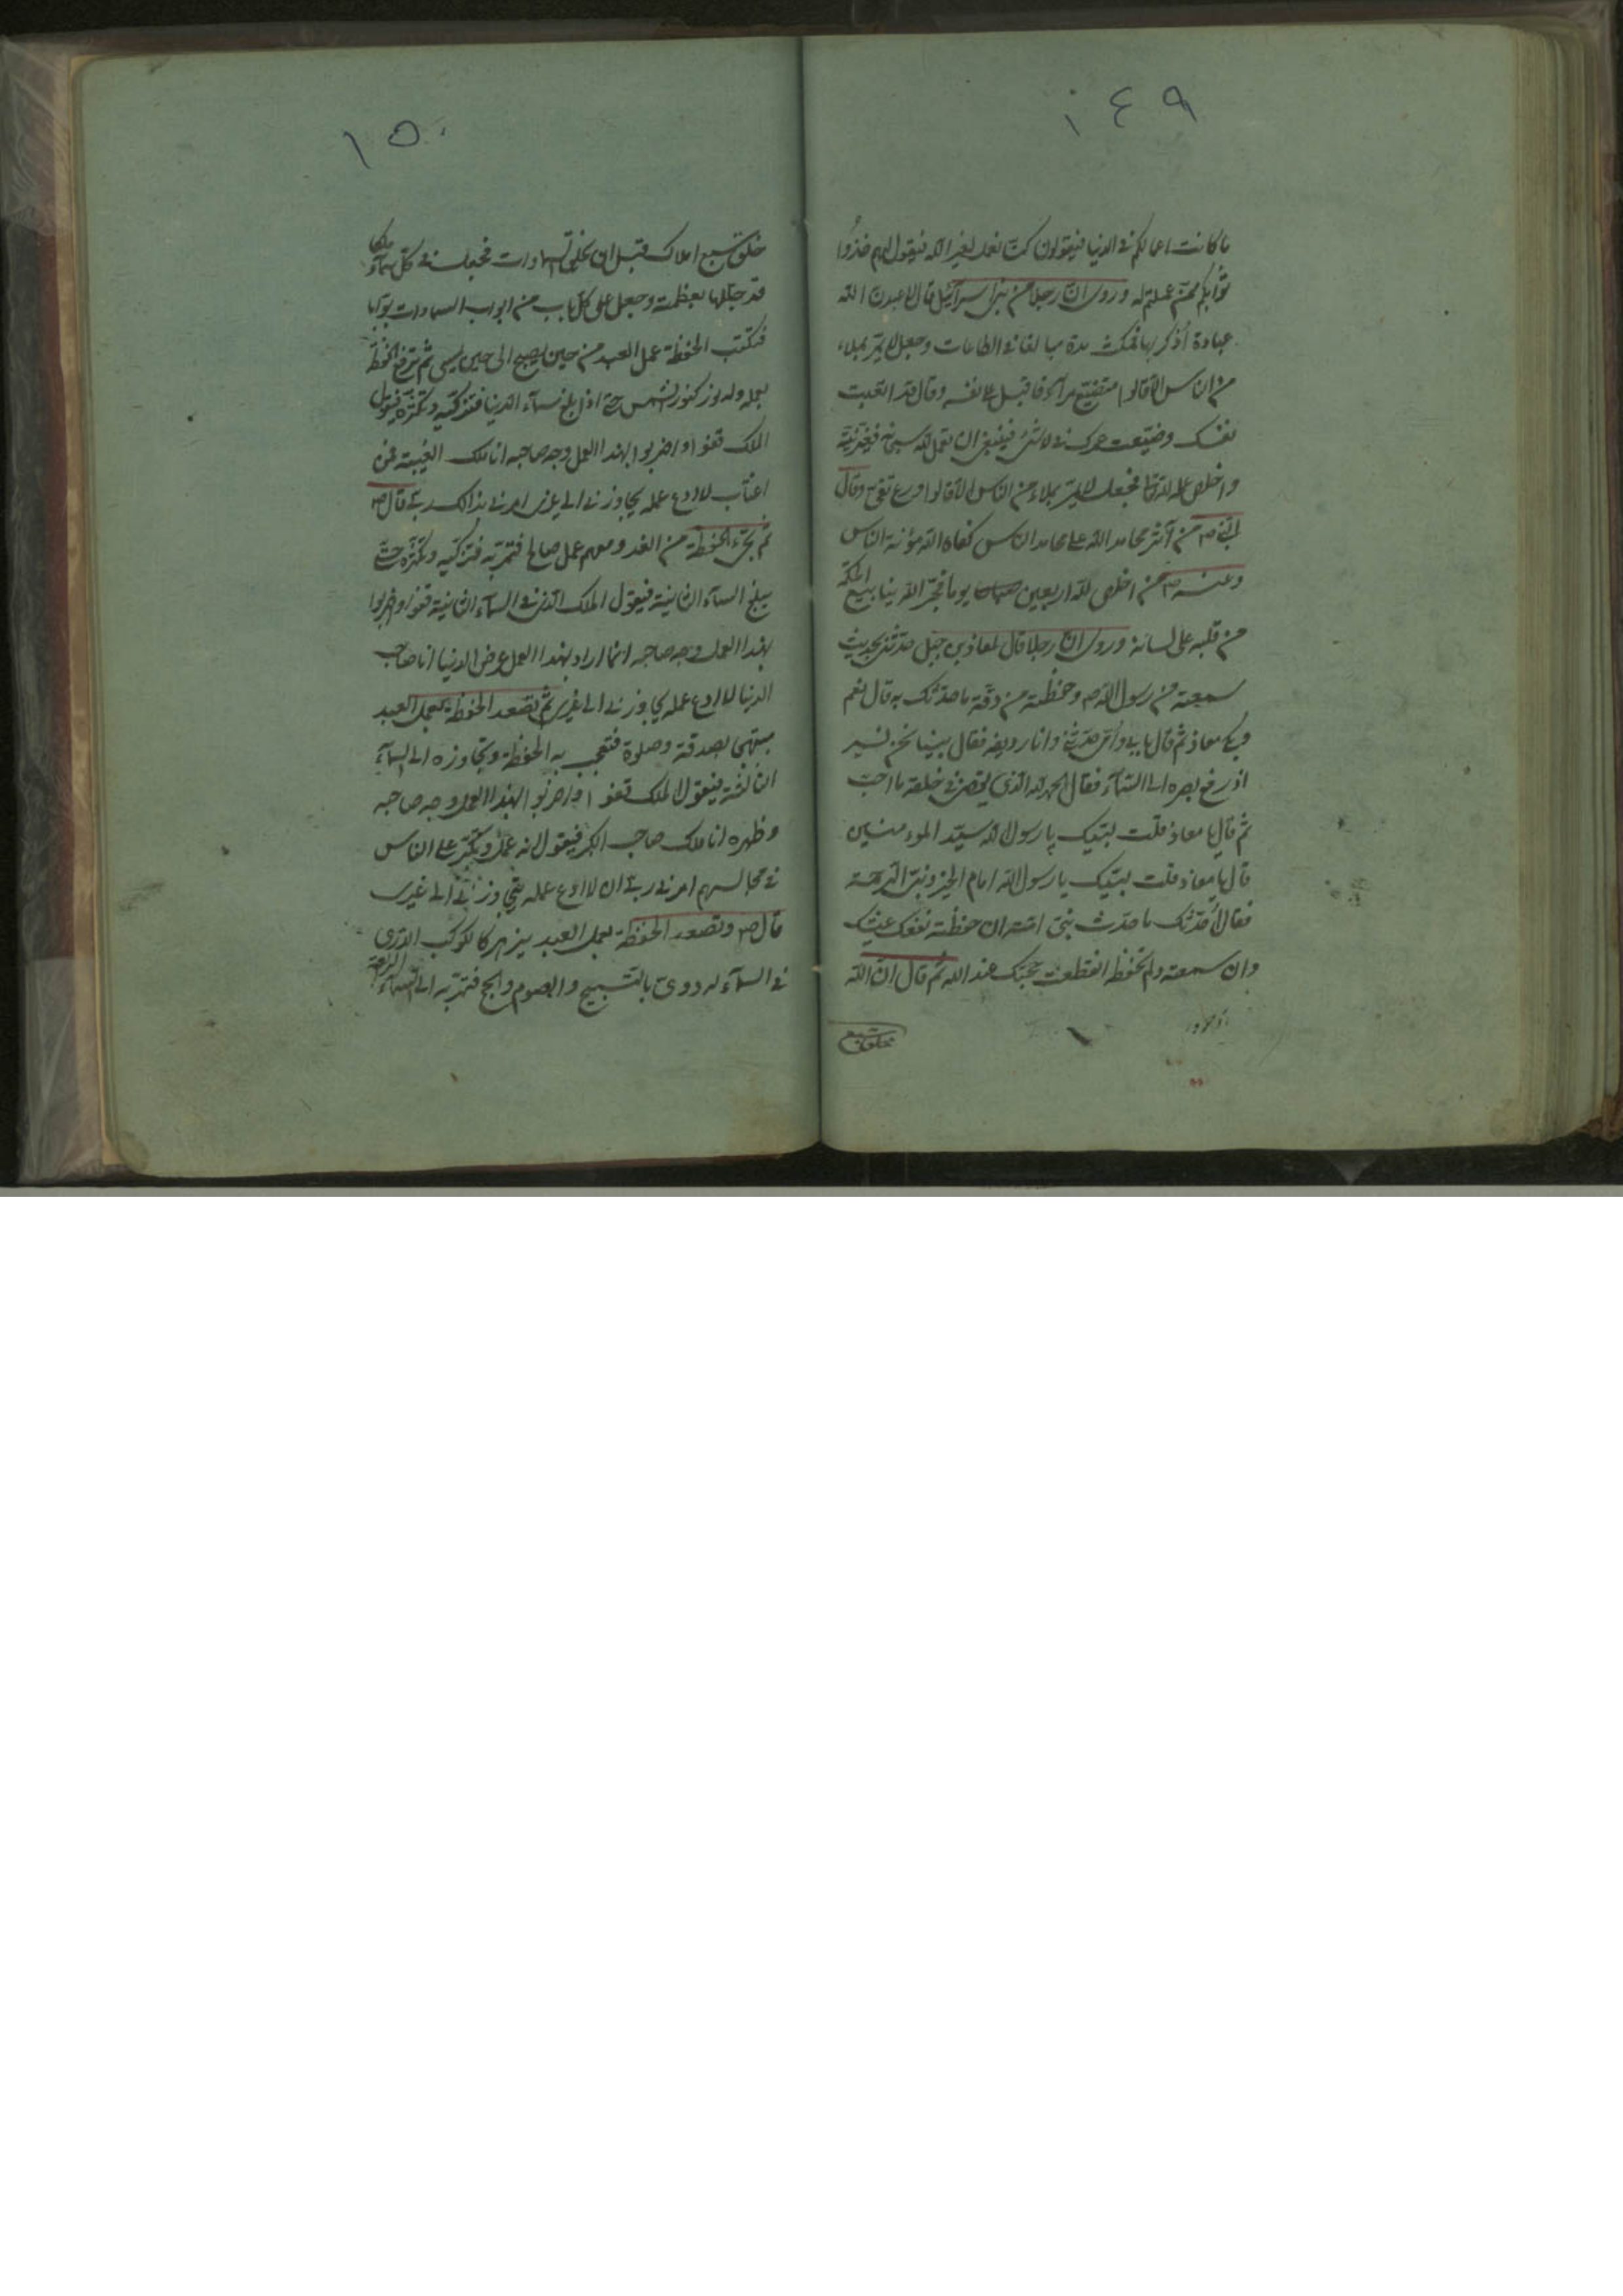 ١٤٩
ما كانت اعمالكم في الدنيا فيقولون كنّا نعمل لغير الله فيقول لهم خذوا
ثوابكم ممّن عملتم له وروى انّ رجلا من بني اسرائيل قال لاعبدنّ الله
عبادة اُذكر بها فمكث مدة مبالغا في الطاعات وجعل لا يمرّ بملاء
من الناس الا قالوا متصنّع مراء فاقبل على نفسه وقال قد اتعبت
نفسك وضيّعت عمرك في لا شئ فينبغي ان تعمل لله سبحانه فغيّر نيّته
واخلص عمله لله تعالى فجعل لا يمرّ بملاء من الناس الا قالوا ورع تقي وقال
النبي ص من آثر محامد الله على محامد الناس كفاه الله مؤنة الناس
وعنه ص من اخلص لله اربعين يوما فجّر الله ينابيع الحكمة
من قلبه على لسانه وروى انّ رجلا قال لمعاذ بن جبل حدّثني بحديث
سمعته من رسول الله ص وحفظته من دقّة ما حدّثك به قال نعم
وبكى معاذ ثم قال بابي وامّي حدّثني وانا رديفه فقال بينا نحن نسير
اذ رفع بصره الى السّماء فقال الحمد لله الذي يقضي في خلقه ما احبّ
ثم قال يا معاذ قلت لبّيك يا رسول الله سيّد المومنين
قال يا معاذ قلت لبّيك يا رسول الله امام الخير ونبيّ الرحمة
فقال اُحدّثك ما حدّث نبيّ امّته ان حفظته نفعك عيشك
وان سمعته ولم تحفظ انقطعت حجّتك عند الله ثم قال انّ الله
خلق سبع
١٥٠
خلق سبع املاك قبل ان يخلق السّماوات فجعل في كل سماء ملكا
قد جلّلها بعظمته وجعل على كل باب من ابواب السماوات بوّابا
فتكتب الحفظة عمل العبد من حين يصبح الى حين يمسي ثم ترفع الحفظة
بعمله وله نور كنور الشمس حتى اذا بلغ سماء الدنيا فتزكّيه وتكثّره فيقول
الملك قفوا واضربوا بهذا العمل وجه صاحبه انا ملك الغيبة فمن
اغتاب لا ادع عمله يجاوزني الى غيري امرني بذالك ربّي قال ص
ثم تجيء الحفظة من الغد ومعهم عمل صالح فتمرّ به فتزكّيه وتكثّره حتّى
يبلغ السماء الثانية فيقول الملك الذي في السماء الثانية قفوا واضربوا
بهذا العمل وجه صاحبه انما اراد بهذا العمل عرض الدنيا انا صاحب
الدنيا لا ادع عمله يجاوزني الى غيري ثم تصعد الحفظة بعمل العبد
مبتهجا بصدقة وصلوة فتعجب به الحفظة وتجاوزه الى السماء
الثالثة فيقول الملك قفوا واضربوا بهذا العمل وجه صاحبه
وظهره انا ملك صاحب الكبر فيقول انه عمل وتكبّر على الناس
في مجالسهم امرني ربّي ان لا ادع عمله يتجاوزني الى غيري
قال ص وتصعد الحفظة بعمل العبد يزهر كالكوكب الدرّي
في السماء له دويّ بالتسبيح والصوم والحج فتمرّ به الى السّماء الرابعة